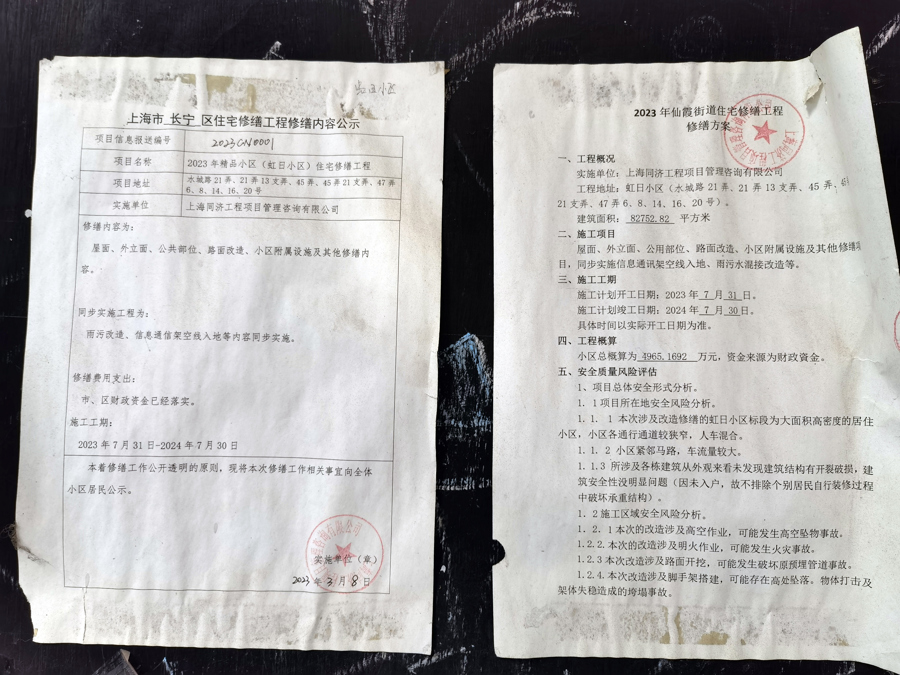 虹日小区
上海市 长宁 区住宅修缮工程修缮内容公示
项目信息报送编号 2023CN0001
项目名称 2023 年精品小区（虹日小区）住宅修缮工程
项目地址 水城路 21 弄、21 弄 13 支弄、45 弄、45 弄 21 支弄、47 弄
6、8、14、16、20 号
实施单位 上海同济工程项目管理咨询有限公司
修缮内容为：
屋面、外立面、公共部位、路面改造、小区附属设施及其他修缮内
容。
同步实施工程为：
雨污改造、信息通信架空线入地等内容同步实施。
修缮费用支出：
市、区财政资金已经落实。
施工工期：
2023 年 7 月 31 日-2024 年 7 月 30 日
本着修缮工作公开透明的原则，现将本次修缮工作相关事宜向全体
小区居民公示。
实施单位（章）
2023 年 3 月 8 日
2023 年仙霞街道住宅修缮工程
修缮方案
一、工程概况
实施单位：上海同济工程项目管理咨询有限公司
工程地址：虹日小区（水城路 21 弄、21 弄 13 支弄、45 弄、45
21 支弄、47 弄 6、8、14、16、20 号）。
建筑面积： 82752.82 平方米
二、施工项目
屋面、外立面、公用部位、路面改造、小区附属设施及其他修缮项
目，同步实施信息通讯架空线入地、雨污水混接改造等。
三、施工工期
施工计划开工日期：2023 年 7 月 31 日。
施工计划竣工日期：2024 年 7 月 30 日。
具体时间以实际开工日期为准。
四、工程概算
小区总概算为 4965.1692 万元，资金来源为财政资金。
五、安全质量风险评估
1、项目总体安全形式分析。
1. 1 项目所在地安全风险分析。
1.1. 1 本次涉及改造修缮的虹日小区标段为大面积高密度的居住
小区，小区各通行通道较狭窄，人车混合。
1.1. 2 小区紧邻马路，车流量较大。
1.1.3 所涉及各栋建筑从外观来看未发现建筑结构有开裂破损，建
筑安全性没明显问题（因未入户，故不排除个别居民自行装修过程
中破坏承重结构）。
1. 2 施工区域安全风险分析。
1.2. 1 本次的改造涉及高空作业，可能发生高空坠物事故。
1.2.2. 本次的改造涉及明火作业，可能发生火灾事故。
1.2.3 本次改造涉及路面开挖，可能发生破坏原预埋管道事故。
1.2.4. 本次改造涉及脚手架搭建，可能存在高处坠落。物体打击及
架体失稳造成的垮塌事故。